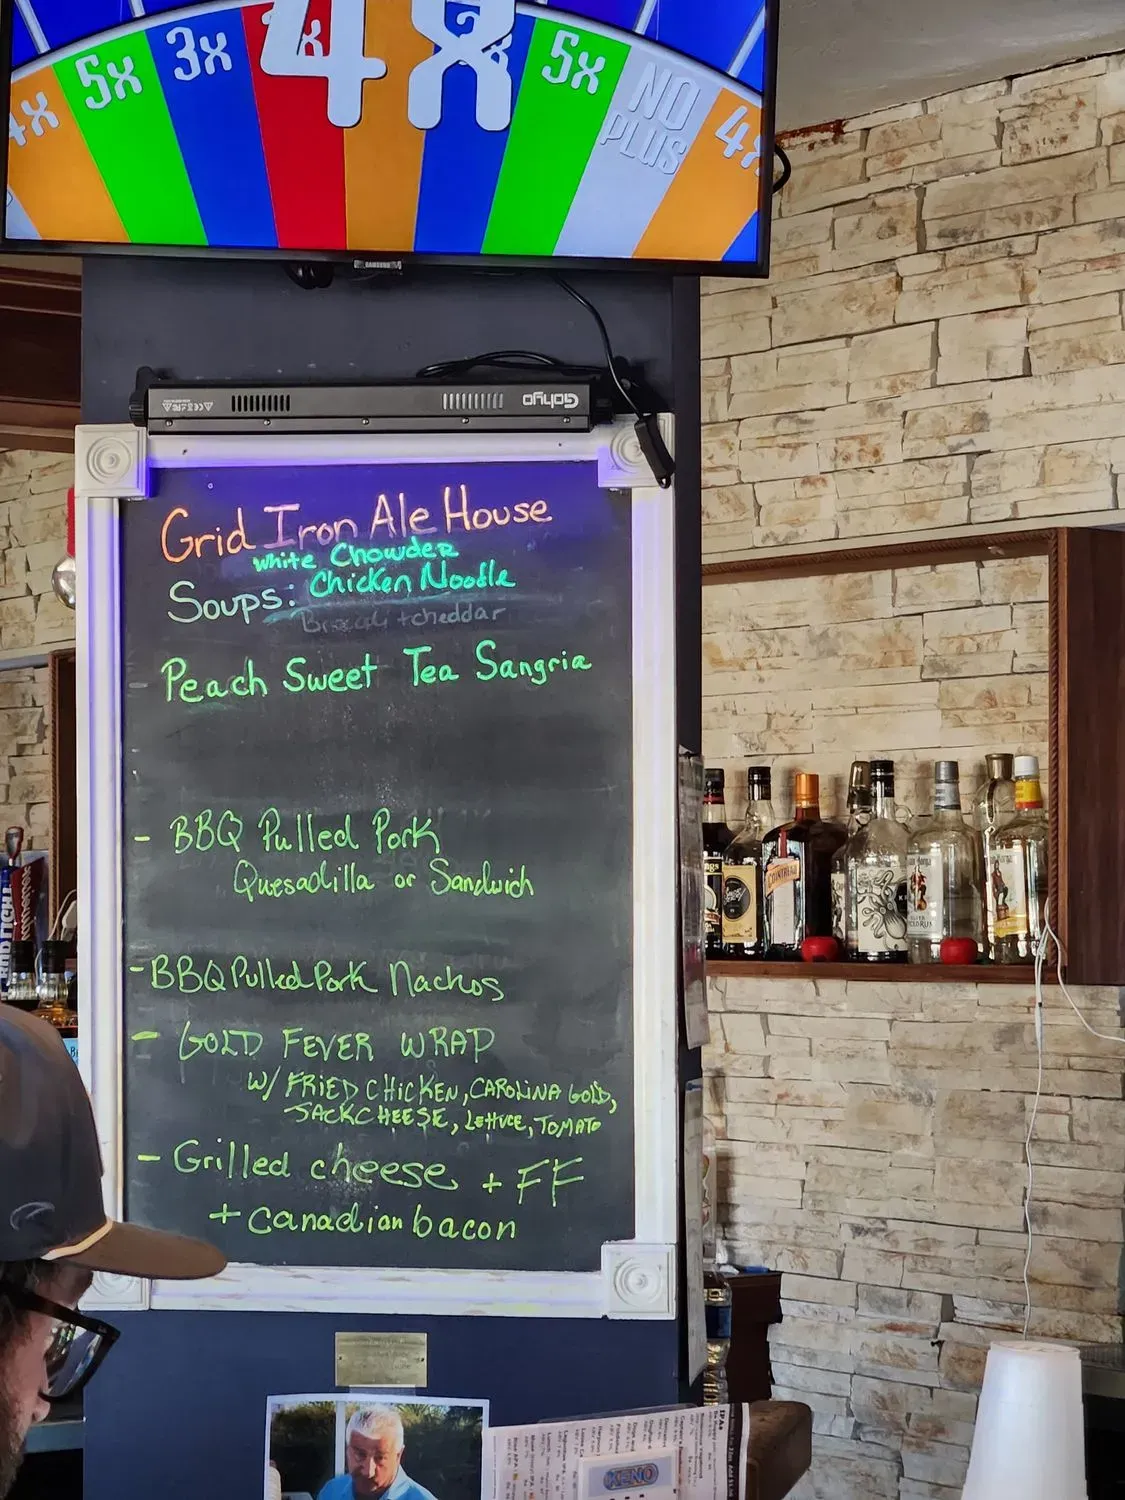 4x
5x
3x
4x
5x
NO
PLUS
4x
SAMSUNG
Gohyo
Grid Iron Ale House
white Chowder
Soups: Chicken Noodle
Broccoli + cheddar
Peach Sweet Tea Sangria
- BBQ Pulled Pork
Quesadilla or Sandwich
- BBQ Pulled Pork Nachos
- GOLD FEVER WRAP
W/ FRIED CHICKEN, CAROLINA GOLD,
JACK CHEESE, LETTUCE, TOMATO
- Grilled cheese + FF
+ canadian bacon
COINTREAU
KENO
IPAs